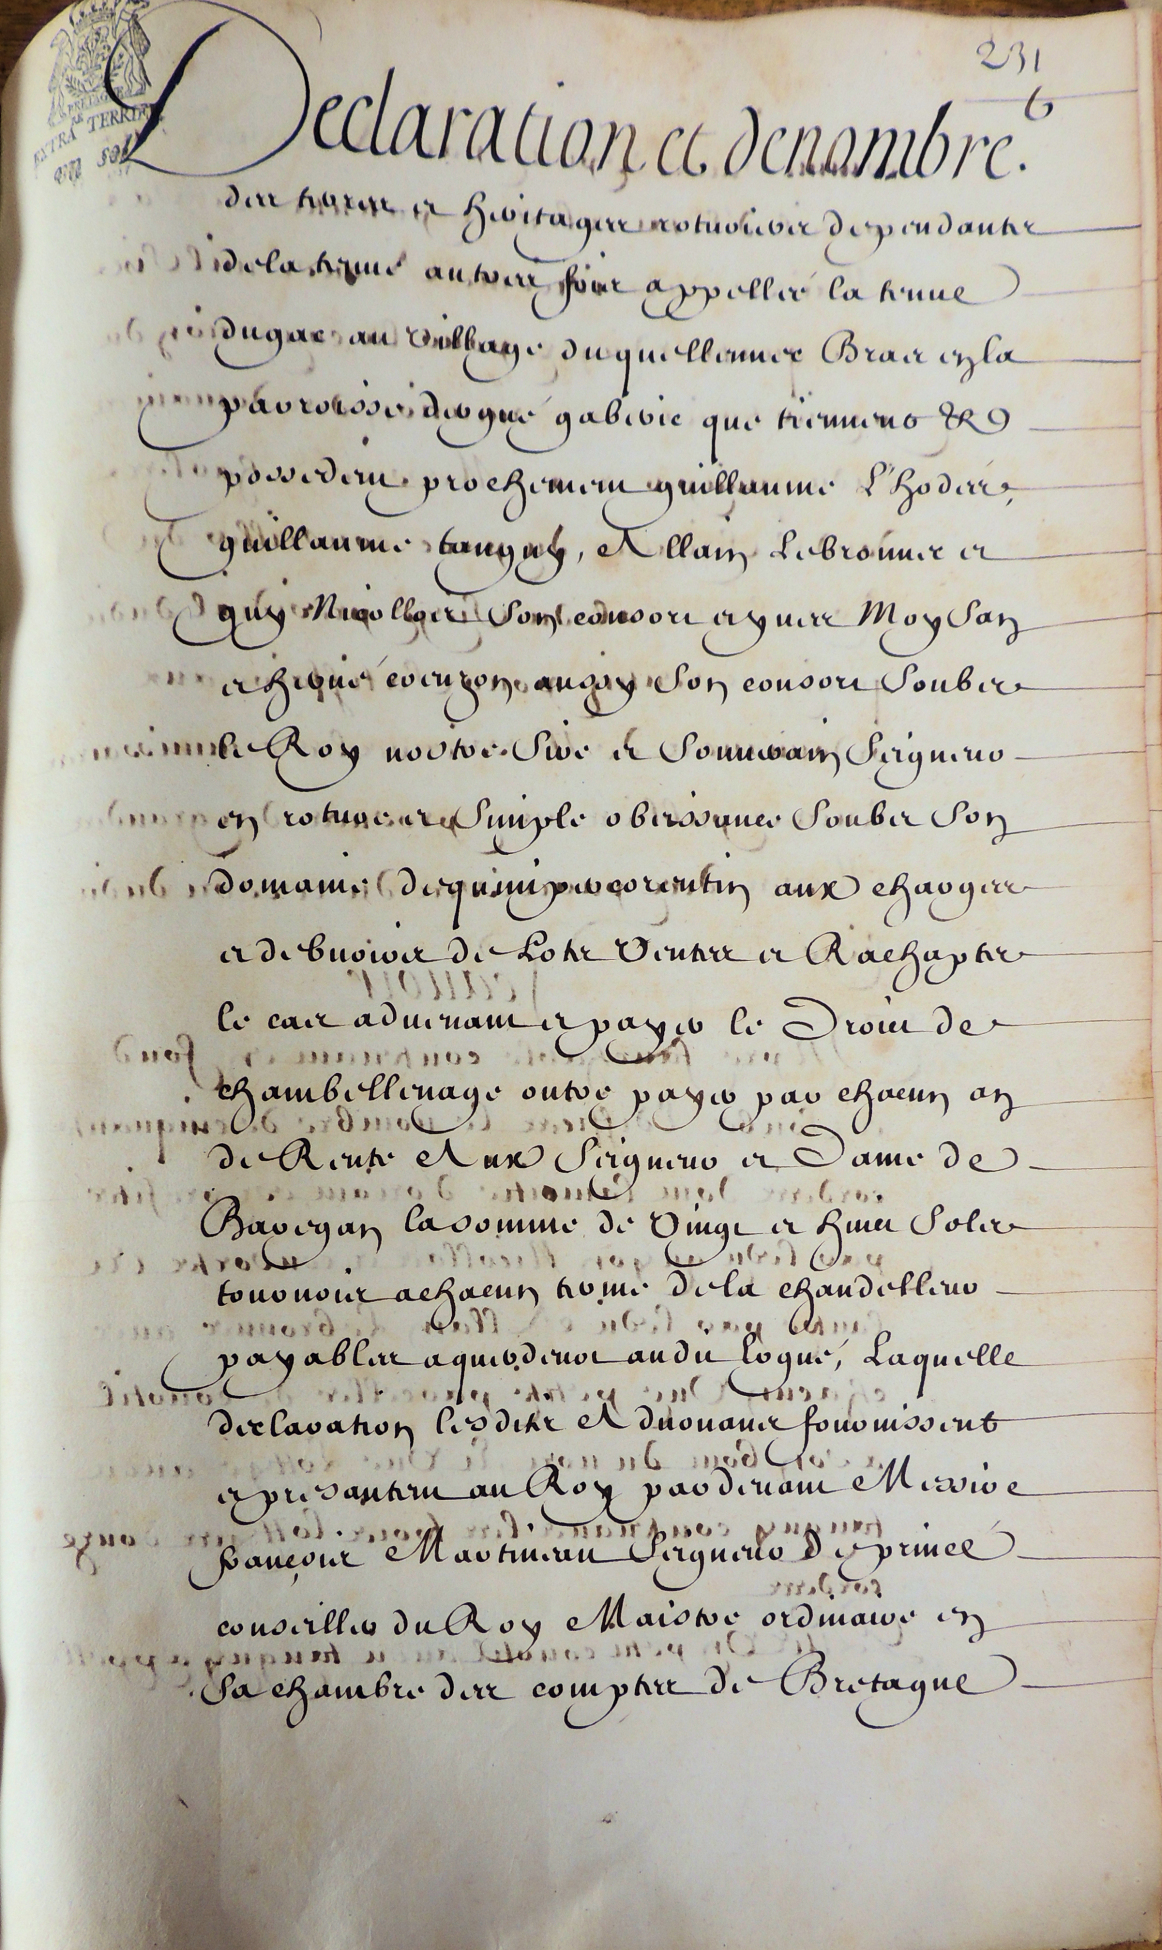 231
6
BRETAGNE
EXTRA TERRITOR
QVA SOL
Declaration et denombre.
des terres et heritages roturieres dependantes
dela tenue autres fois appellée la tenue
du gac au Village du quellennec Bras en la
parroisse d'ergué gaberic que tiennent &
possedent prochement guillaume L'hoder,
guillaume tanguy, Allain Lebronnec et
guy Nicollas son consort et yues Moysan
et heruué couenzon aussy son consort soubz
le Roy nostre Sire et Souuerain Seigneur
en roture et simple obeissance soubz son
domaine de quimpercorentin aux charges
et debuoirs de Lotz Ventes et Rachaptz
le cas aduenant et payer le Droit de
chambellenage outre payer par chacun an
de Rente Aux Seigneur et Dame de
Baregan la somme de Vingt et huict solz
tournois a chacun terme de la chandelleur
payables a quiodenot audit Ergué, Laquelle
declaration lesditz Aduouans fournissent
et presantent au Roy par deuant Messire
françois Martineau Seigneur de princé
conseiller du Roy Maistre ordinaire en
Sa chambre des comptes de Bretagne